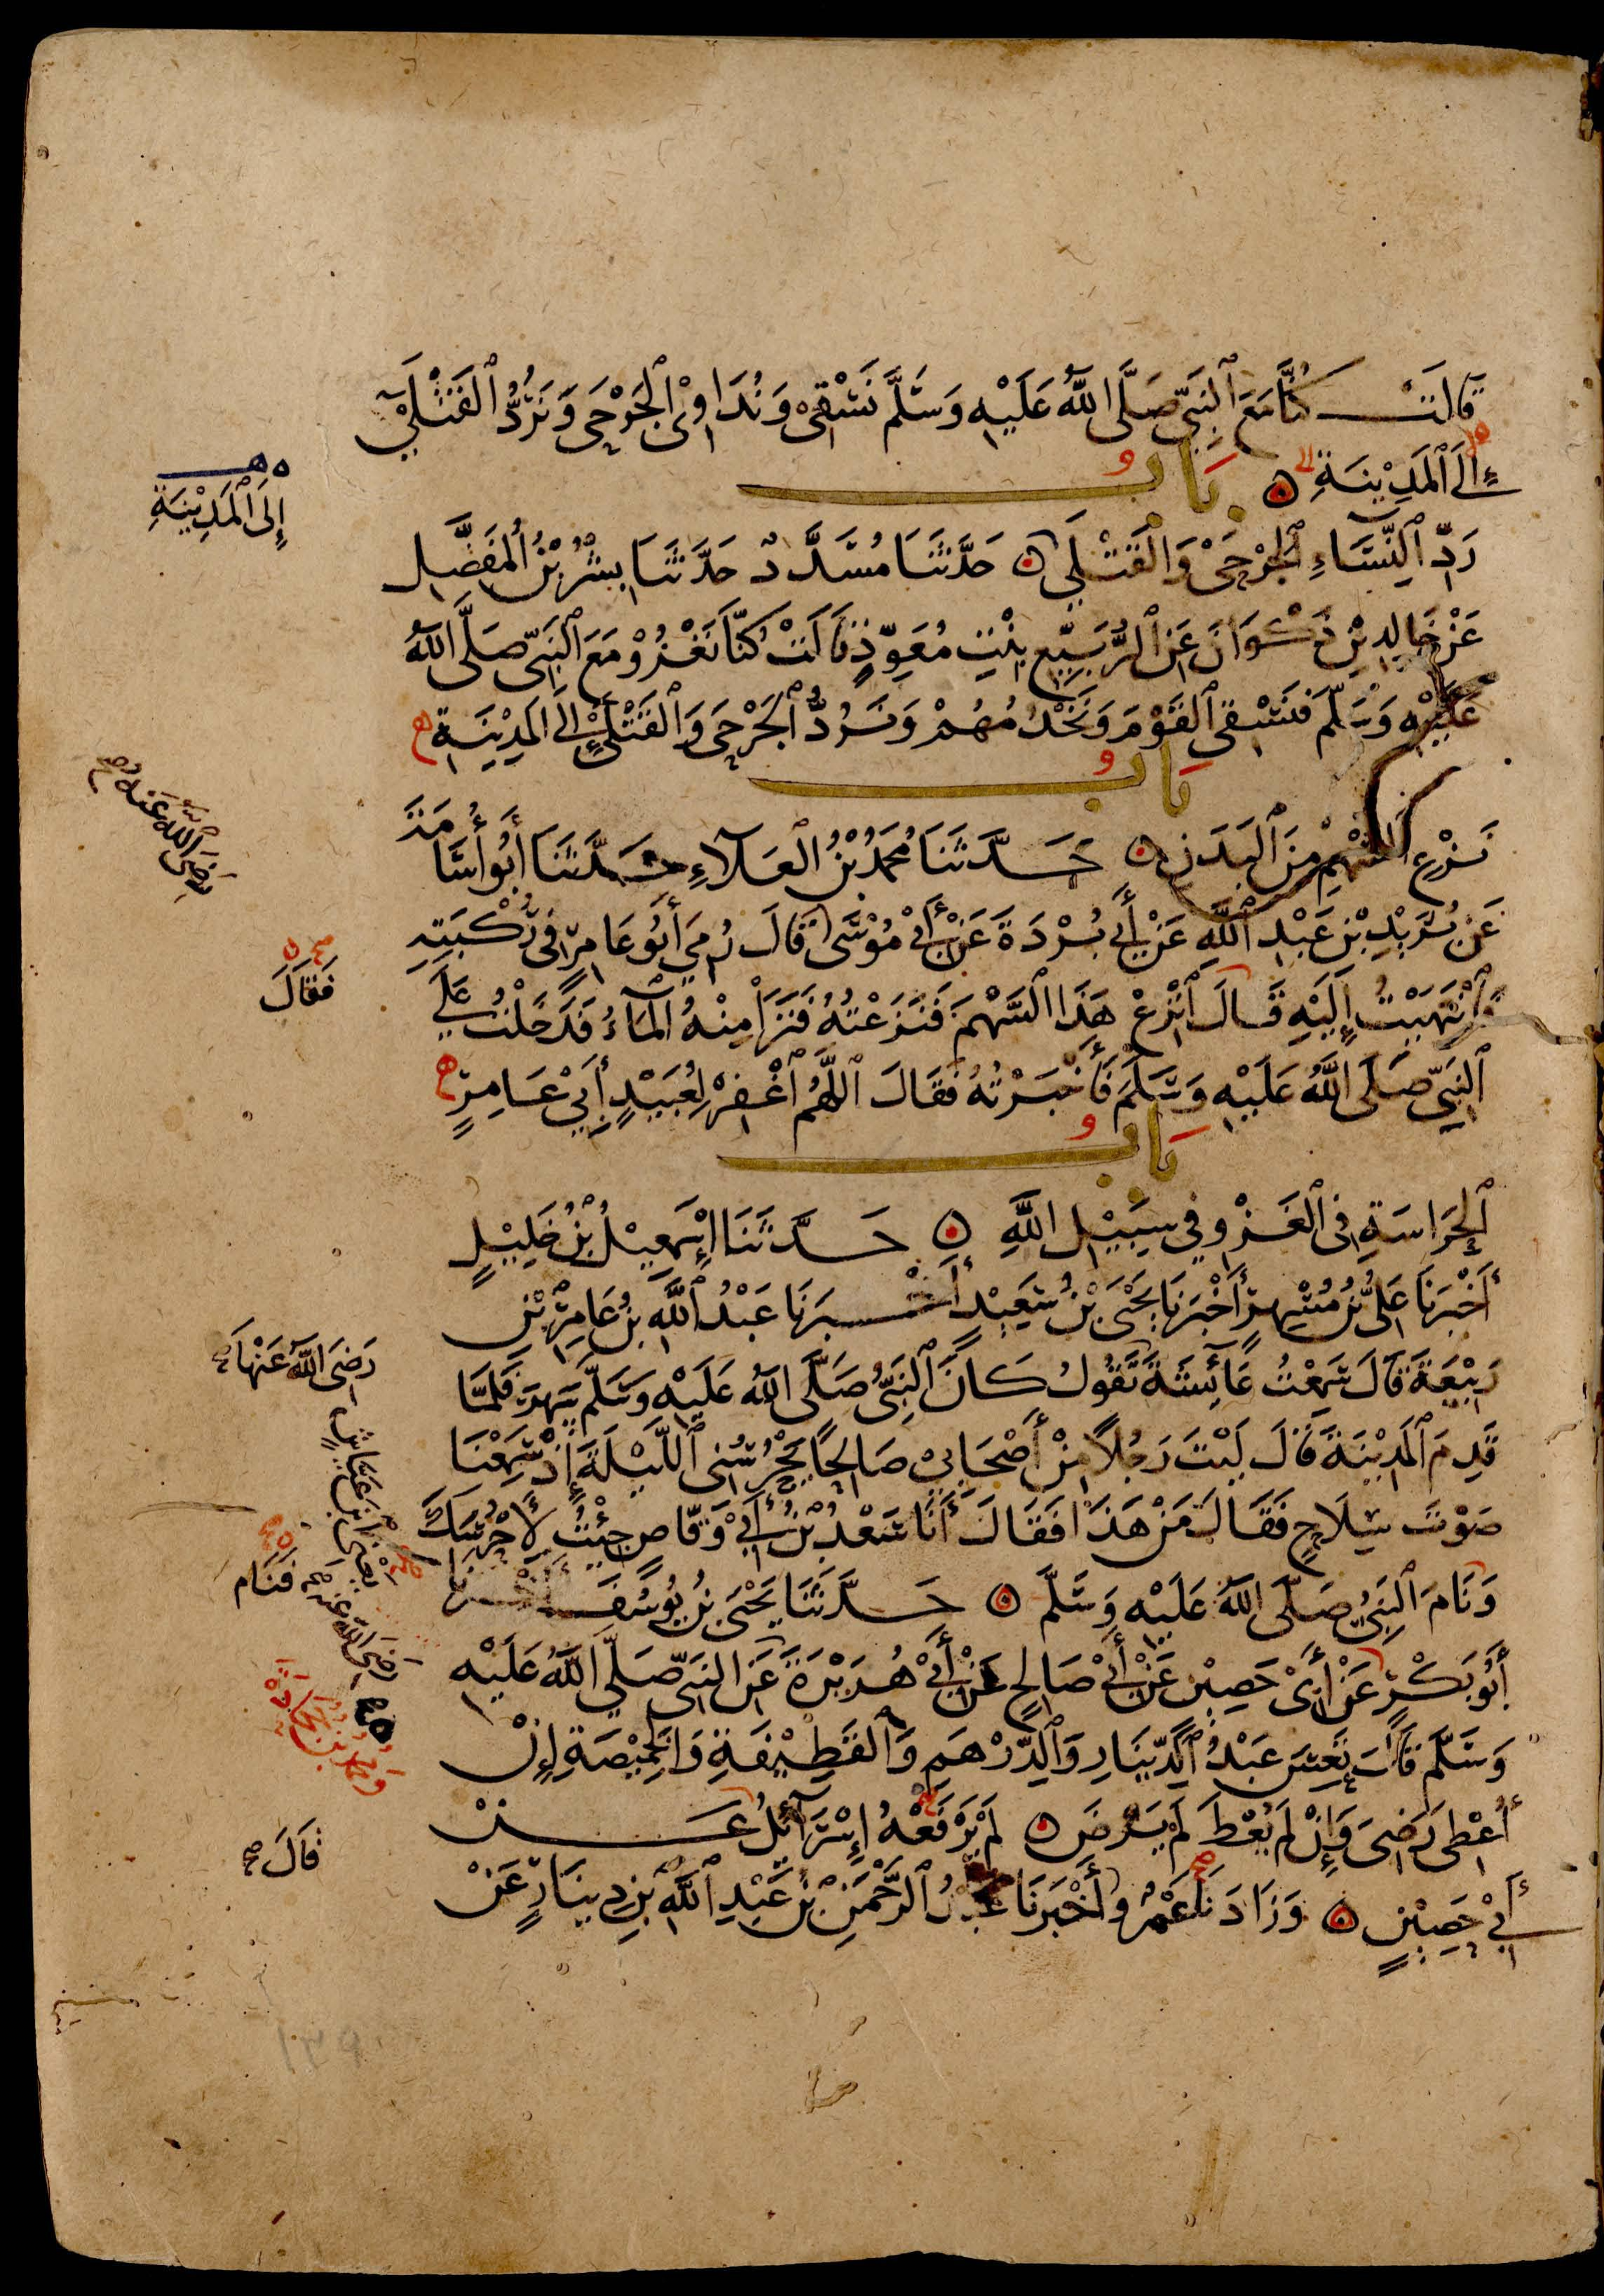 قَالَتْ كُنَّا مَعَ ٱلنَّبِيِّ صَلَّى ٱللَّهُ عَلَيْهِ وَسَلَّمَ نَسْقِي وَنُدَاوِي ٱلْجَرْحَى وَنَرُدُّ ٱلْقَتْلَى
إِلَى ٱلْمَدِيْنَةِ
بَابُ
رَدِّ ٱلنِّسَاءِ ٱلْجَرْحَى وَٱلْقَتْلَى حَدَّثَنَا مُسَدَّدٌ حَدَّثَنَا بِشْرُ بْنُ ٱلْمُفَضَّلِ
عَنْ خَالِدِ بْنِ ذَكْوَانَ عَنِ ٱلرُّبَيِّعِ بِنْتِ مُعَوِّذٍ قَالَتْ كُنَّا نَغْزُوْ مَعَ ٱلنَّبِيِّ صَلَّى ٱللَّهُ
عَلَيْهِ وَسَلَّمَ فَنَسْقِي ٱلْقَوْمَ وَنَخْدُمُهُمْ وَنَرُدُّ ٱلْجَرْحَى وَٱلْقَتْلَى إِلَى ٱلْمَدِيْنَةِ
بَابُ
نَزْعِ ٱلسَّهْمِ مِنَ ٱلْبَدَنِ حَدَّثَنَا مُحَمَّدُ بْنُ ٱلْعَلَآءِ حَدَّثَنَا أَبُو أُسَامَةَ
عَنْ بُرَيْدِ بْنِ عَبْدِ ٱللَّهِ عَنْ أَبِي بُرْدَةَ عَنْ أَبِيْ مُوْسَى قَالَ رُمِيَ أَبُو عَامِرٍ فِي رُكْبَتِهِ
فَٱنْتَهَيْتُ إِلَيْهِ قَالَ ٱنْزِعْ هَذَا ٱلسَّهْمَ فَنَزَعْتُهُ فَنَزَا مِنْهُ ٱلْمَآءُ فَدَخَلْتُ عَلَى
ٱلنَّبِيِّ صَلَّى ٱللَّهُ عَلَيْهِ وَسَلَّمَ فَأَخْبَرْتُهُ فَقَالَ ٱللَّهُمَّ ٱغْفِرْ لِعُبَيْدٍ أَبِيْ عَامِرٍ
بَابُ
ٱلْحِرَاسَةِ فِي ٱلْغَزْوِ فِي سَبِيْلِ ٱللَّهِ حَدَّثَنَا إِسْمَعِيْلُ بْنُ خَلِيْلٍ
أَخْبَرَنَا عَلِيُّ بْنُ مُسْهِرٍ أَخْبَرَنَا يَحْيَى بْنُ سَعِيْدٍ أَخْبَرَنَا عَبْدُ ٱللَّهِ بْنُ عَامِرِ بْنِ
رَبِيْعَةَ قَالَ سَمِعْتُ عَآئِشَةَ تَقُولُ كَانَ ٱلنَّبِيُّ صَلَّى ٱللَّهُ عَلَيْهِ وَسَلَّمَ سَهِرَ فَلَمَّا
قَدِمَ ٱلْمَدِيْنَةَ قَالَ لَيْتَ رَجُلًا مِنْ أَصْحَابِيْ صَالِحًا يَحْرُسُنِي ٱللَّيْلَةَ إِذْ سَمِعْنَا
صَوْتَ سِلَاحٍ فَقَالَ مَنْ هَذَا فَقَالَ أَنَا سَعْدُ بْنُ أَبِيْ وَقَّاصٍ جِئْتُ لِأَحْرُسَكَ
وَنَامَ ٱلنَّبِيُّ صَلَّى ٱللَّهُ عَلَيْهِ وَسَلَّمَ حَدَّثَنَا يَحْيَى بْنُ يُوسُفَ أَخْبَرَنَا
أَبُو بَكْرٍ عَنْ أَبِيْ حَصِيْنٍ عَنْ أَبِيْ صَالِحٍ عَنْ أَبِيْ هُرَيْرَةَ عَنِ ٱلنَّبِيِّ صَلَّى ٱللَّهُ عَلَيْهِ
وَسَلَّمَ قَالَ تَعِسَ عَبْدُ ٱلدِّيْنَارِ وَٱلدِّرْهَمِ وَٱلْقَطِيْفَةِ وَٱلْخَمِيْصَةِ إِنْ
أُعْطِيَ رَضِيَ وَإِنْ لَمْ يُعْطَ لَمْ يَرْضَ لَمْ يَرْفَعْهُ إِسْرَآئِلُ عَنْ
أَبِيْ حَصِيْنٍ وَزَادَنَا عَمْرٌو أَخْبَرَنَا عَبْدُ ٱلرَّحْمَنِ بْنُ عَبْدِ ٱللَّهِ بْنِ دِيْنَارٍ عَنْ
إِلَى ٱلْمَدِيْنَةِ
رَضِيَ ٱللَّهُ عَنْهُ
فَقَالَ
رَضِيَ ٱللَّهُ عَنْهَا
يَعْنِي ٱبْنَ عَيَّاشٍ
فَنَامَ
رَضِيَ ٱللَّهُ عَنْهُ
وَمُحَمَّدُ بْنُ جُحَادَةَ
قَالَ